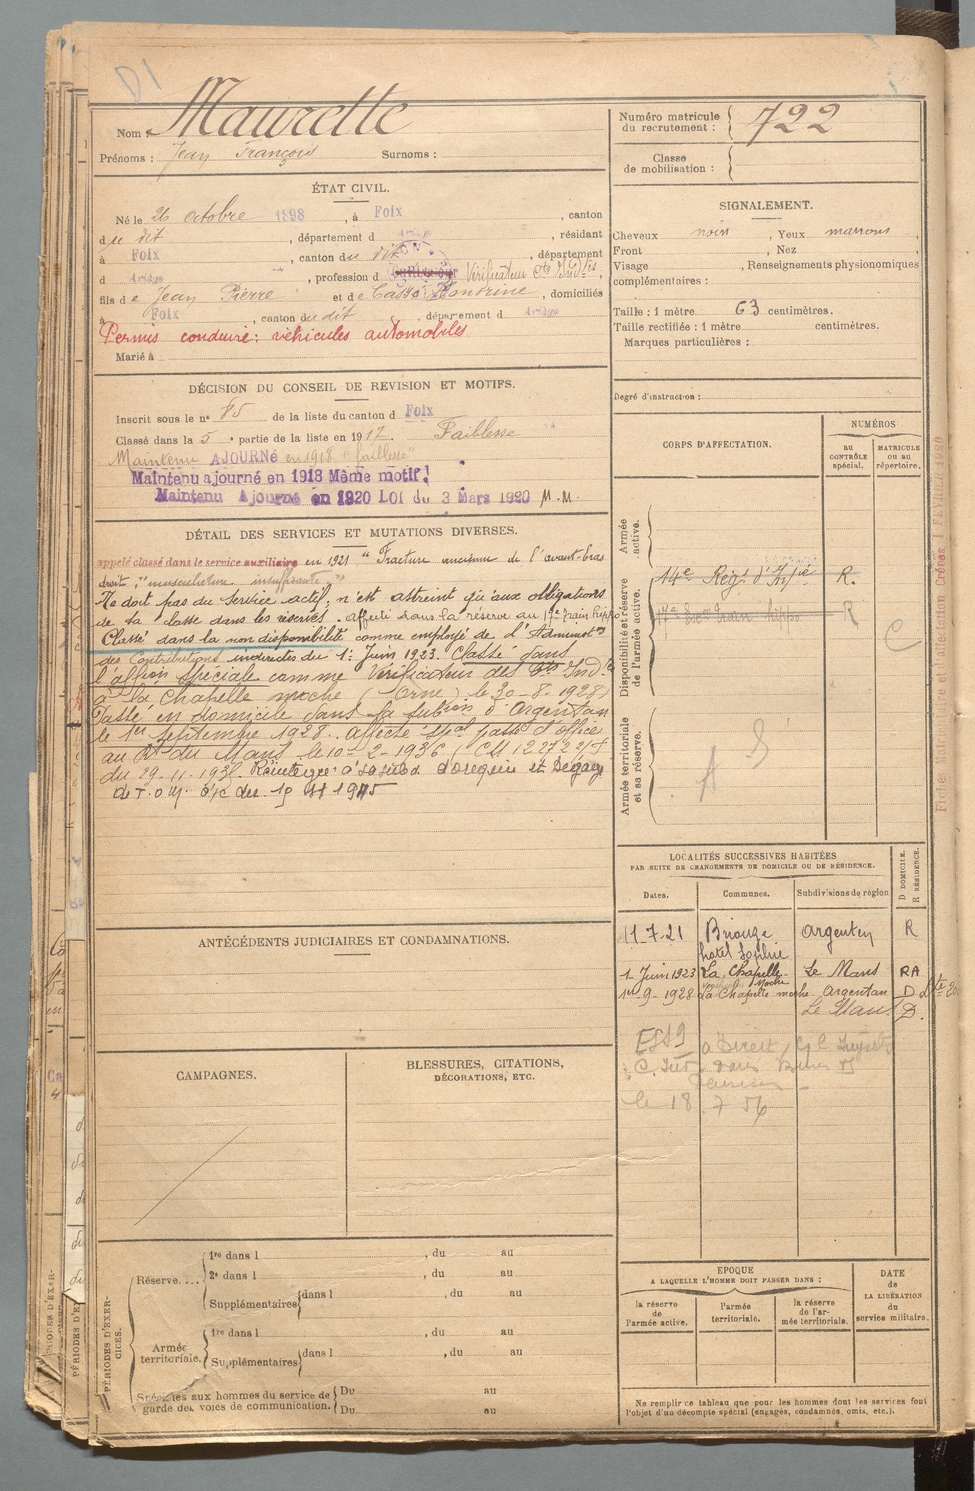 D1
Nom : Maurette
Prénoms : Jean François Surnoms :
ÉTAT CIVIL.
Né le 26 octobre 1898, à Foix, canton
du dit, département d Ariège, résidant
à Foix, canton du dit, département
d Ariège, profession d Vérificateur Ctes Indtes,
fils de Jean Pierre et de Casse Flandrine, domiciliés
à Foix, canton du dit, département d Ariège
Permis conduire : véhicules automobiles
Marié à
DÉCISION DU CONSEIL DE REVISION ET MOTIFS.
Inscrit sous le n° 85 de la liste du canton d Foix
Classé dans la 5e partie de la liste en 1917. Faiblesse
Maintenu AJOURNÉ en 1918 "faiblesse"
Maintenu ajourné en 1918 Même motif!
Maintenu Ajourné en 1920 LOI du 3 Mars 1920 M.M.
DÉTAIL DES SERVICES ET MUTATIONS DIVERSES.
appelé classé dans le service auxiliaire en 1921 "Fracture ancienne de l'avant-bras
droit ; "musculature insuffisante."
Ne doit pas du service actif ; n'est astreint qu'aux obligations
de sa classe dans les réserves. Affecté dans la réserve au 17e train hippo
Classé dans la non disponibilité comme employé de l'Administon
des Contributions indirectes du 1er Juin 1923. Classé dans
l'affion spéciale comme Vérificateur des Ctes Indtes
à la Chapelle moche (Orne) le 30-8-1928.
Passé en domicile dans la subion d'Argentan
le 1er septembre 1928. affecté spal passé d'office
au Rt du Mans le 10-2-1936 (CM 12272
du 29.11.193 . Réintégré à sa subd d'origine et Dégagé
de T.O.M. 1945
ANTÉCÉDENTS JUDICIAIRES ET CONDAMNATIONS.
CAMPAGNES.
BLESSURES, CITATIONS,
DÉCORATIONS, ETC.
PÉRIODES D'EXERCICES.
Réserve.... 1re dans l , du au
2e dans l , du au
Supplémentaires dans l , du au
Armée territoriale. 1re dans l , du au
Supplémentaires dans l , du au
Spéciales aux hommes du service de garde des voies de communication. Du au
Du au
Numéro matricule du recrutement : 722
Classe de mobilisation :
SIGNALEMENT.
Cheveux noirs, Yeux marrons,
Front , Nez
Visage , Renseignements physionomiques
complémentaires :
Taille : 1 mètre 63 centimètres.
Taille rectifiée : 1 mètre centimètres.
Marques particulières :
Degré d'instruction :
CORPS D'AFFECTATION.
NUMÉROS
AU CONTRÔLE spécial.
MATRICULE OU AU répertoire.
Armée active.
Disponibilité et réserve de l'armée active.
14e Régt d'Infie R.
17e Escon train hippo R
C
Armée territoriale et sa réserve.
A S
LOCALITÉS SUCCESSIVES HABITÉES
PAR SUITE DE CHANGEMENTS DE DOMICILE OU DE RÉSIDENCE.
Dates. Communes. Subdivisions de région D DOMICILE. R RÉSIDENCE.
11-7-21 Briouze Argentan R
hotel Sophie
1 Juin 1923 La Chapelle Moche Le Mans RA
1er-9-1928 La Chapelle moche Argentan D
Le Mans D.
le 18 7 56
EPOQUE
A LAQUELLE L'HOMME DOIT PASSER DANS :
la réserve de l'armée active.
l'armée territoriale.
la réserve de l'armée territoriale.
DATE de LA LIBÉRATION du service militaire.
Ne remplir ce tableau que pour les hommes dont les services font
l'objet d'un décompte spécial (engagés, condamnés, omis, etc.).